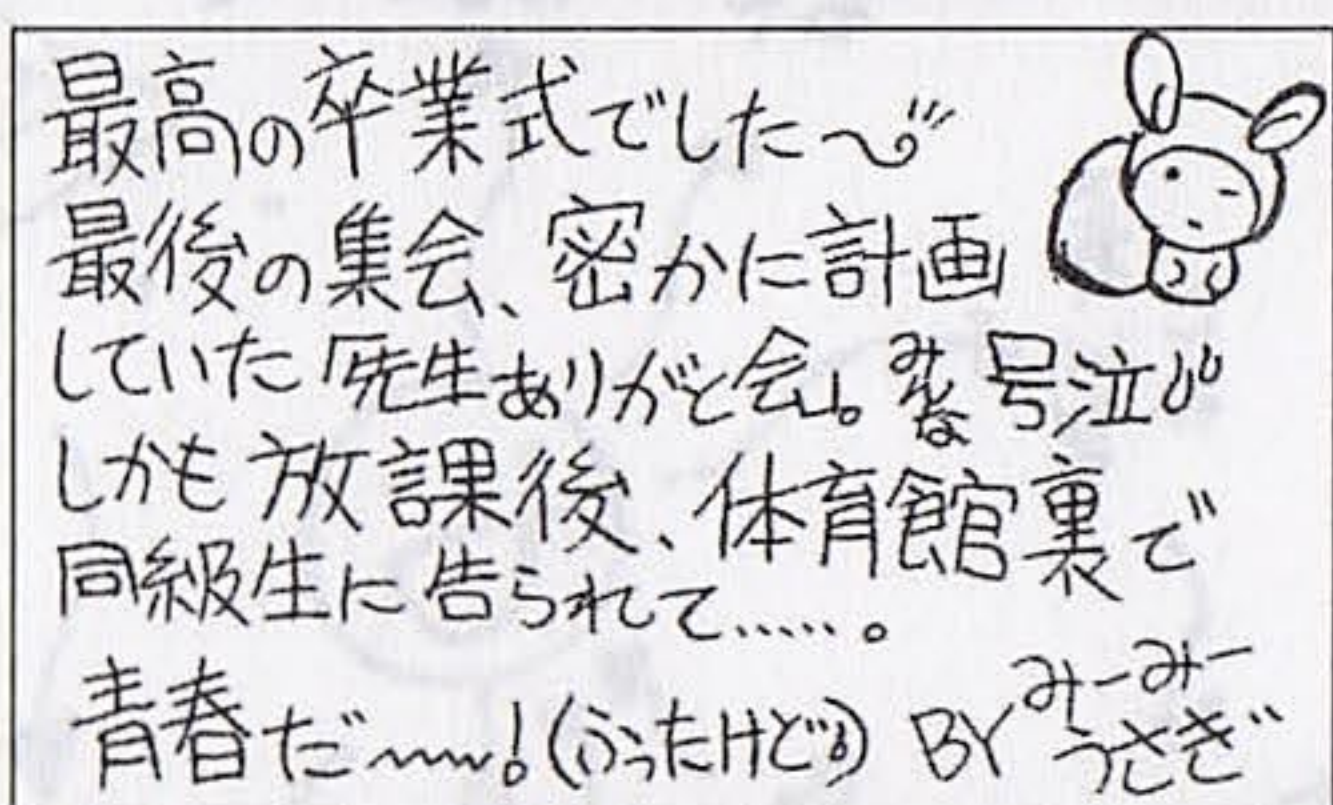 最高の卒業式でした〜
最後の集会、密かに計画
していた「先生ありがと会」。みんな号泣
しかも放課後、体育館裏で
同級生に告られて……。
青春だ〜〜!(ふったけど)BYみーみーうさぎ